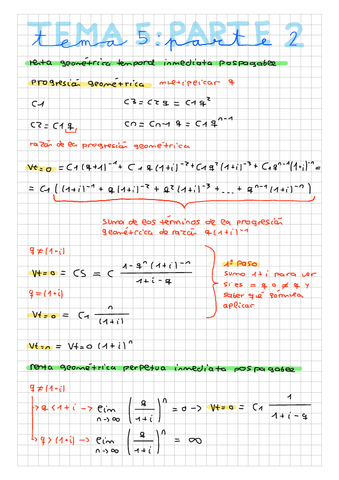 TEMA 5: PARTE 2
tema 5: parte 2
renta geométrica temporal inmediata pospagable
progresión geométrica multiplicar q
C1 C3 = C2 q = C1 q²
C2 = C1 q Cn = Cn-1 q = C1 q^n-1
razón de la progresión geométrica
Vt=0 = C1 (q+1)^-1 + C1 q (1+i)^-2 + C1 q² (1+i)^-3 + C1 q^n-1 (1+i)^-n =
= C1 ( (1+i)^-1 + q (1+i)^-2 + q² (1+i)^-3 + ... + q^n-1 (1+i)^-n )
suma de los términos de la progresión
geométrica de razón q (1+i)^-1
q ≠ (1+i)
Vt=0 = CS = C (1 - q^n (1+i)^-n) / (1+i-q)
1º PASO
sumo 1+i para ver
si es = q o ≠ q y
saber qué fórmula
aplicar
q = (1+i)
Vt=0 = C1 n / (1+i)
Vt=n = Vt=0 (1+i)^n
renta geométrica perpetua inmediata pospagable
q ≠ (1+i)
→ q < 1+i → lim n→∞ (q / 1+i)^n = 0 → Vt=0 = C1 1 / (1+i-q)
→ q > (1+i) → lim n→∞ (q / 1+i)^n = ∞